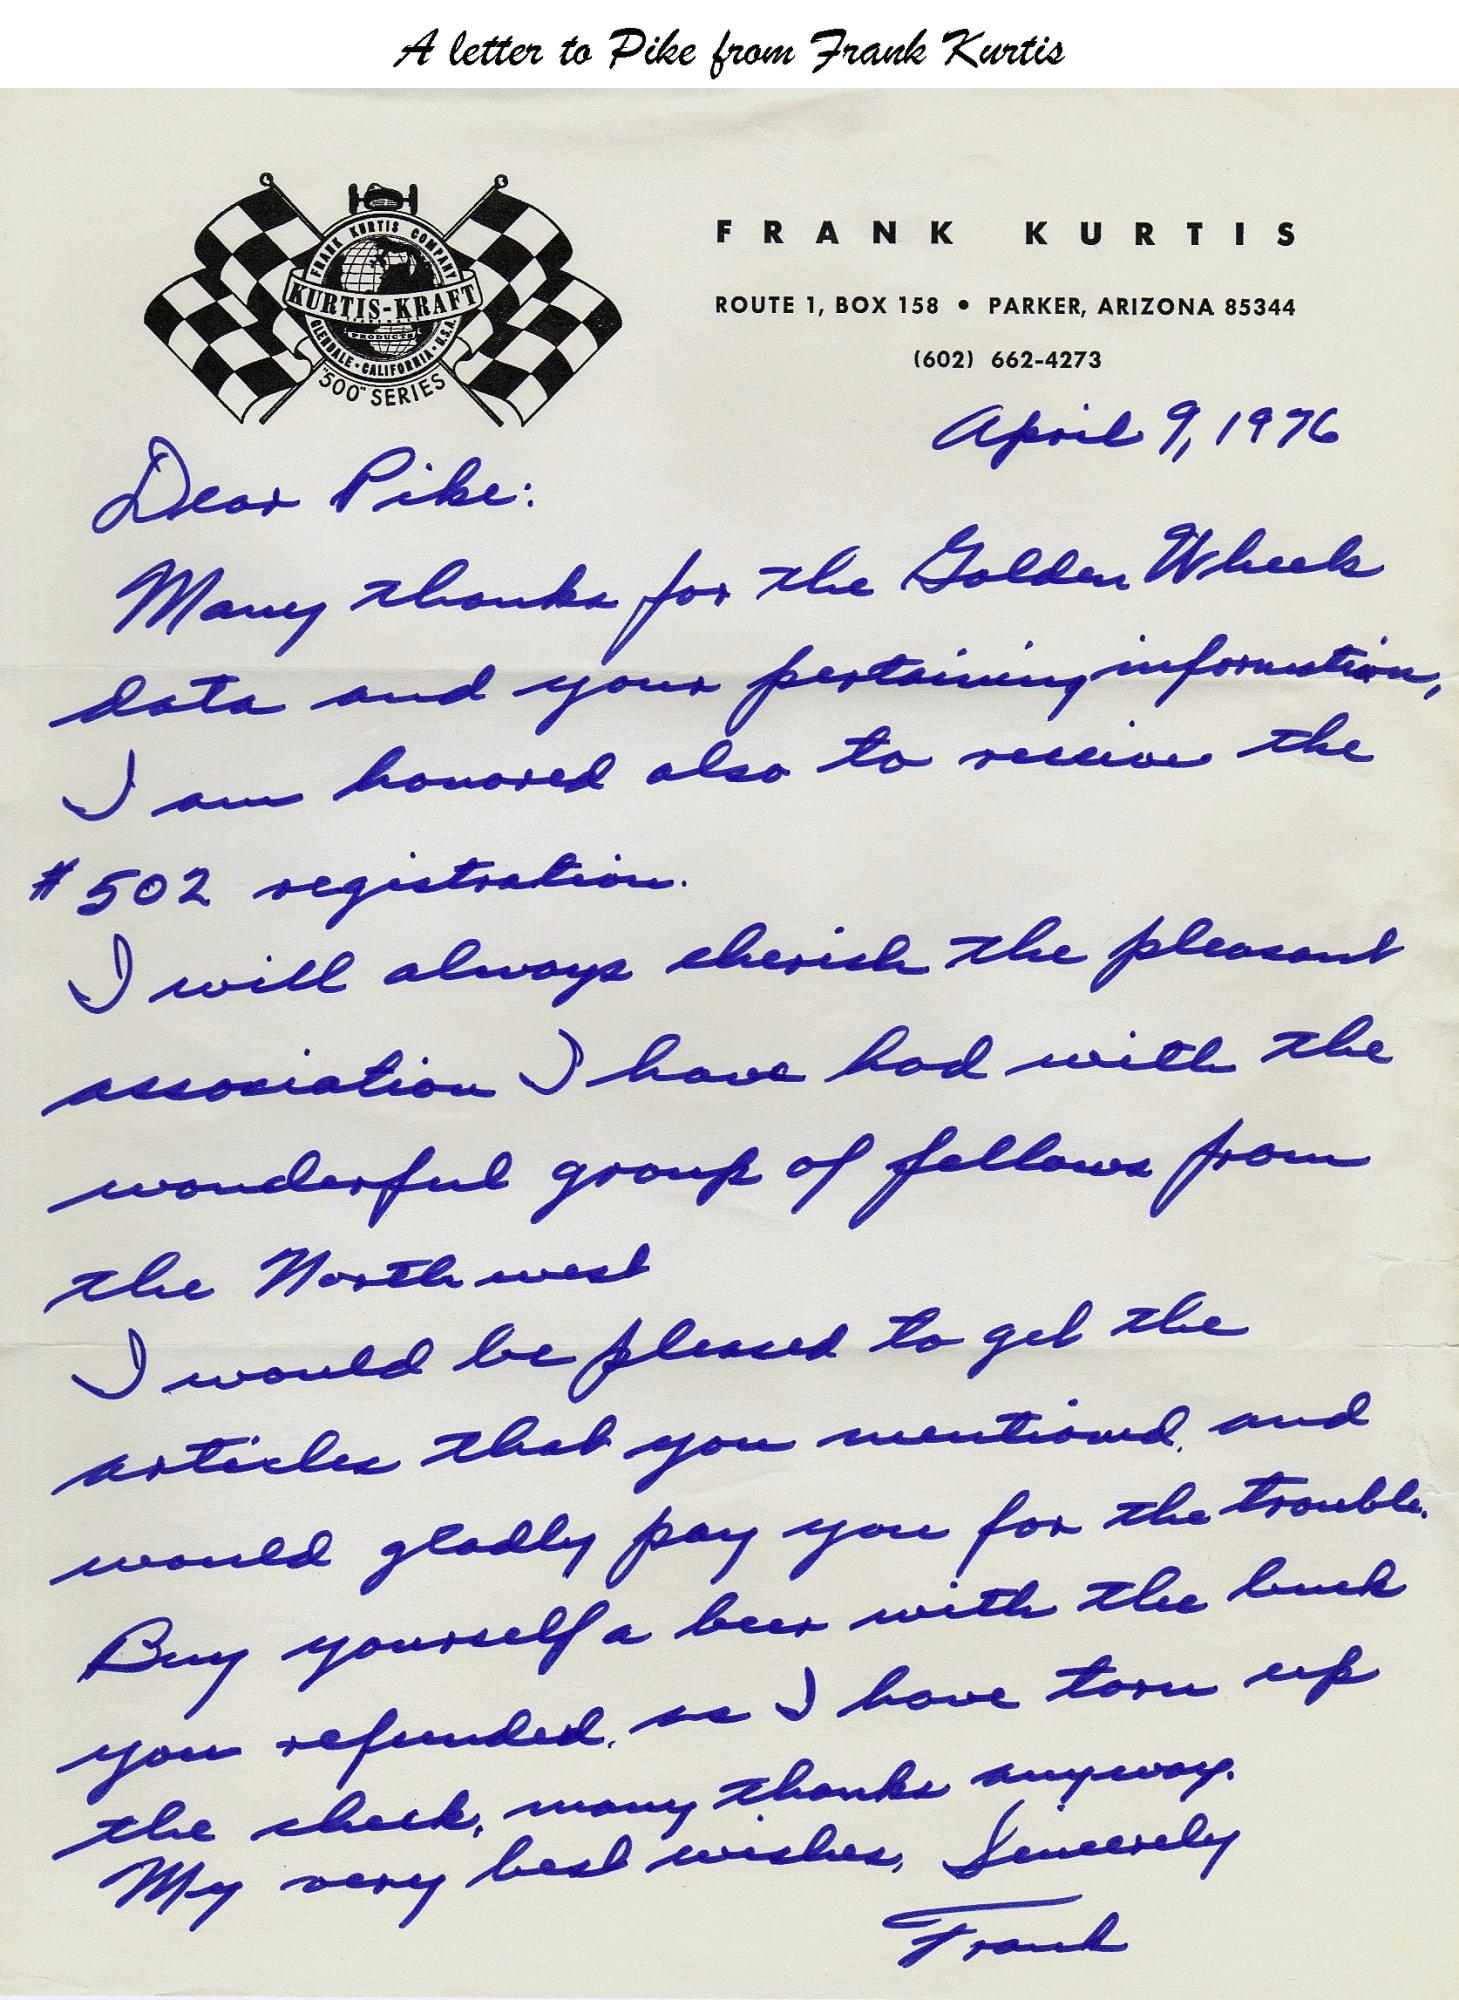 A letter to Pike from Frank Kurtis
FRANK KURTIS COMPANY
KURTIS-KRAFT
PRODUCTS
GLENDALE - CALIFORNIA - U.S.A.
"500" SERIES
FRANK KURTIS
ROUTE 1, BOX 158 • PARKER, ARIZONA 85344
(602) 662-4273
April 9, 1976
Dear Pike:
Many thanks for the Golden Wheels
data and your pertaining information,
I am honored also to receive the
#502 registration.
I will always cherish the pleasant
association I have had with the
wonderful group of fellows from
the Northwest
I would be pleased to get the
articles that you mentioned, and
would gladly pay you for the trouble.
Buy yourself a beer with the buck
you refunded, as I have torn up
the check, many thanks anyway.
My very best wishes, Sincerely
Frank